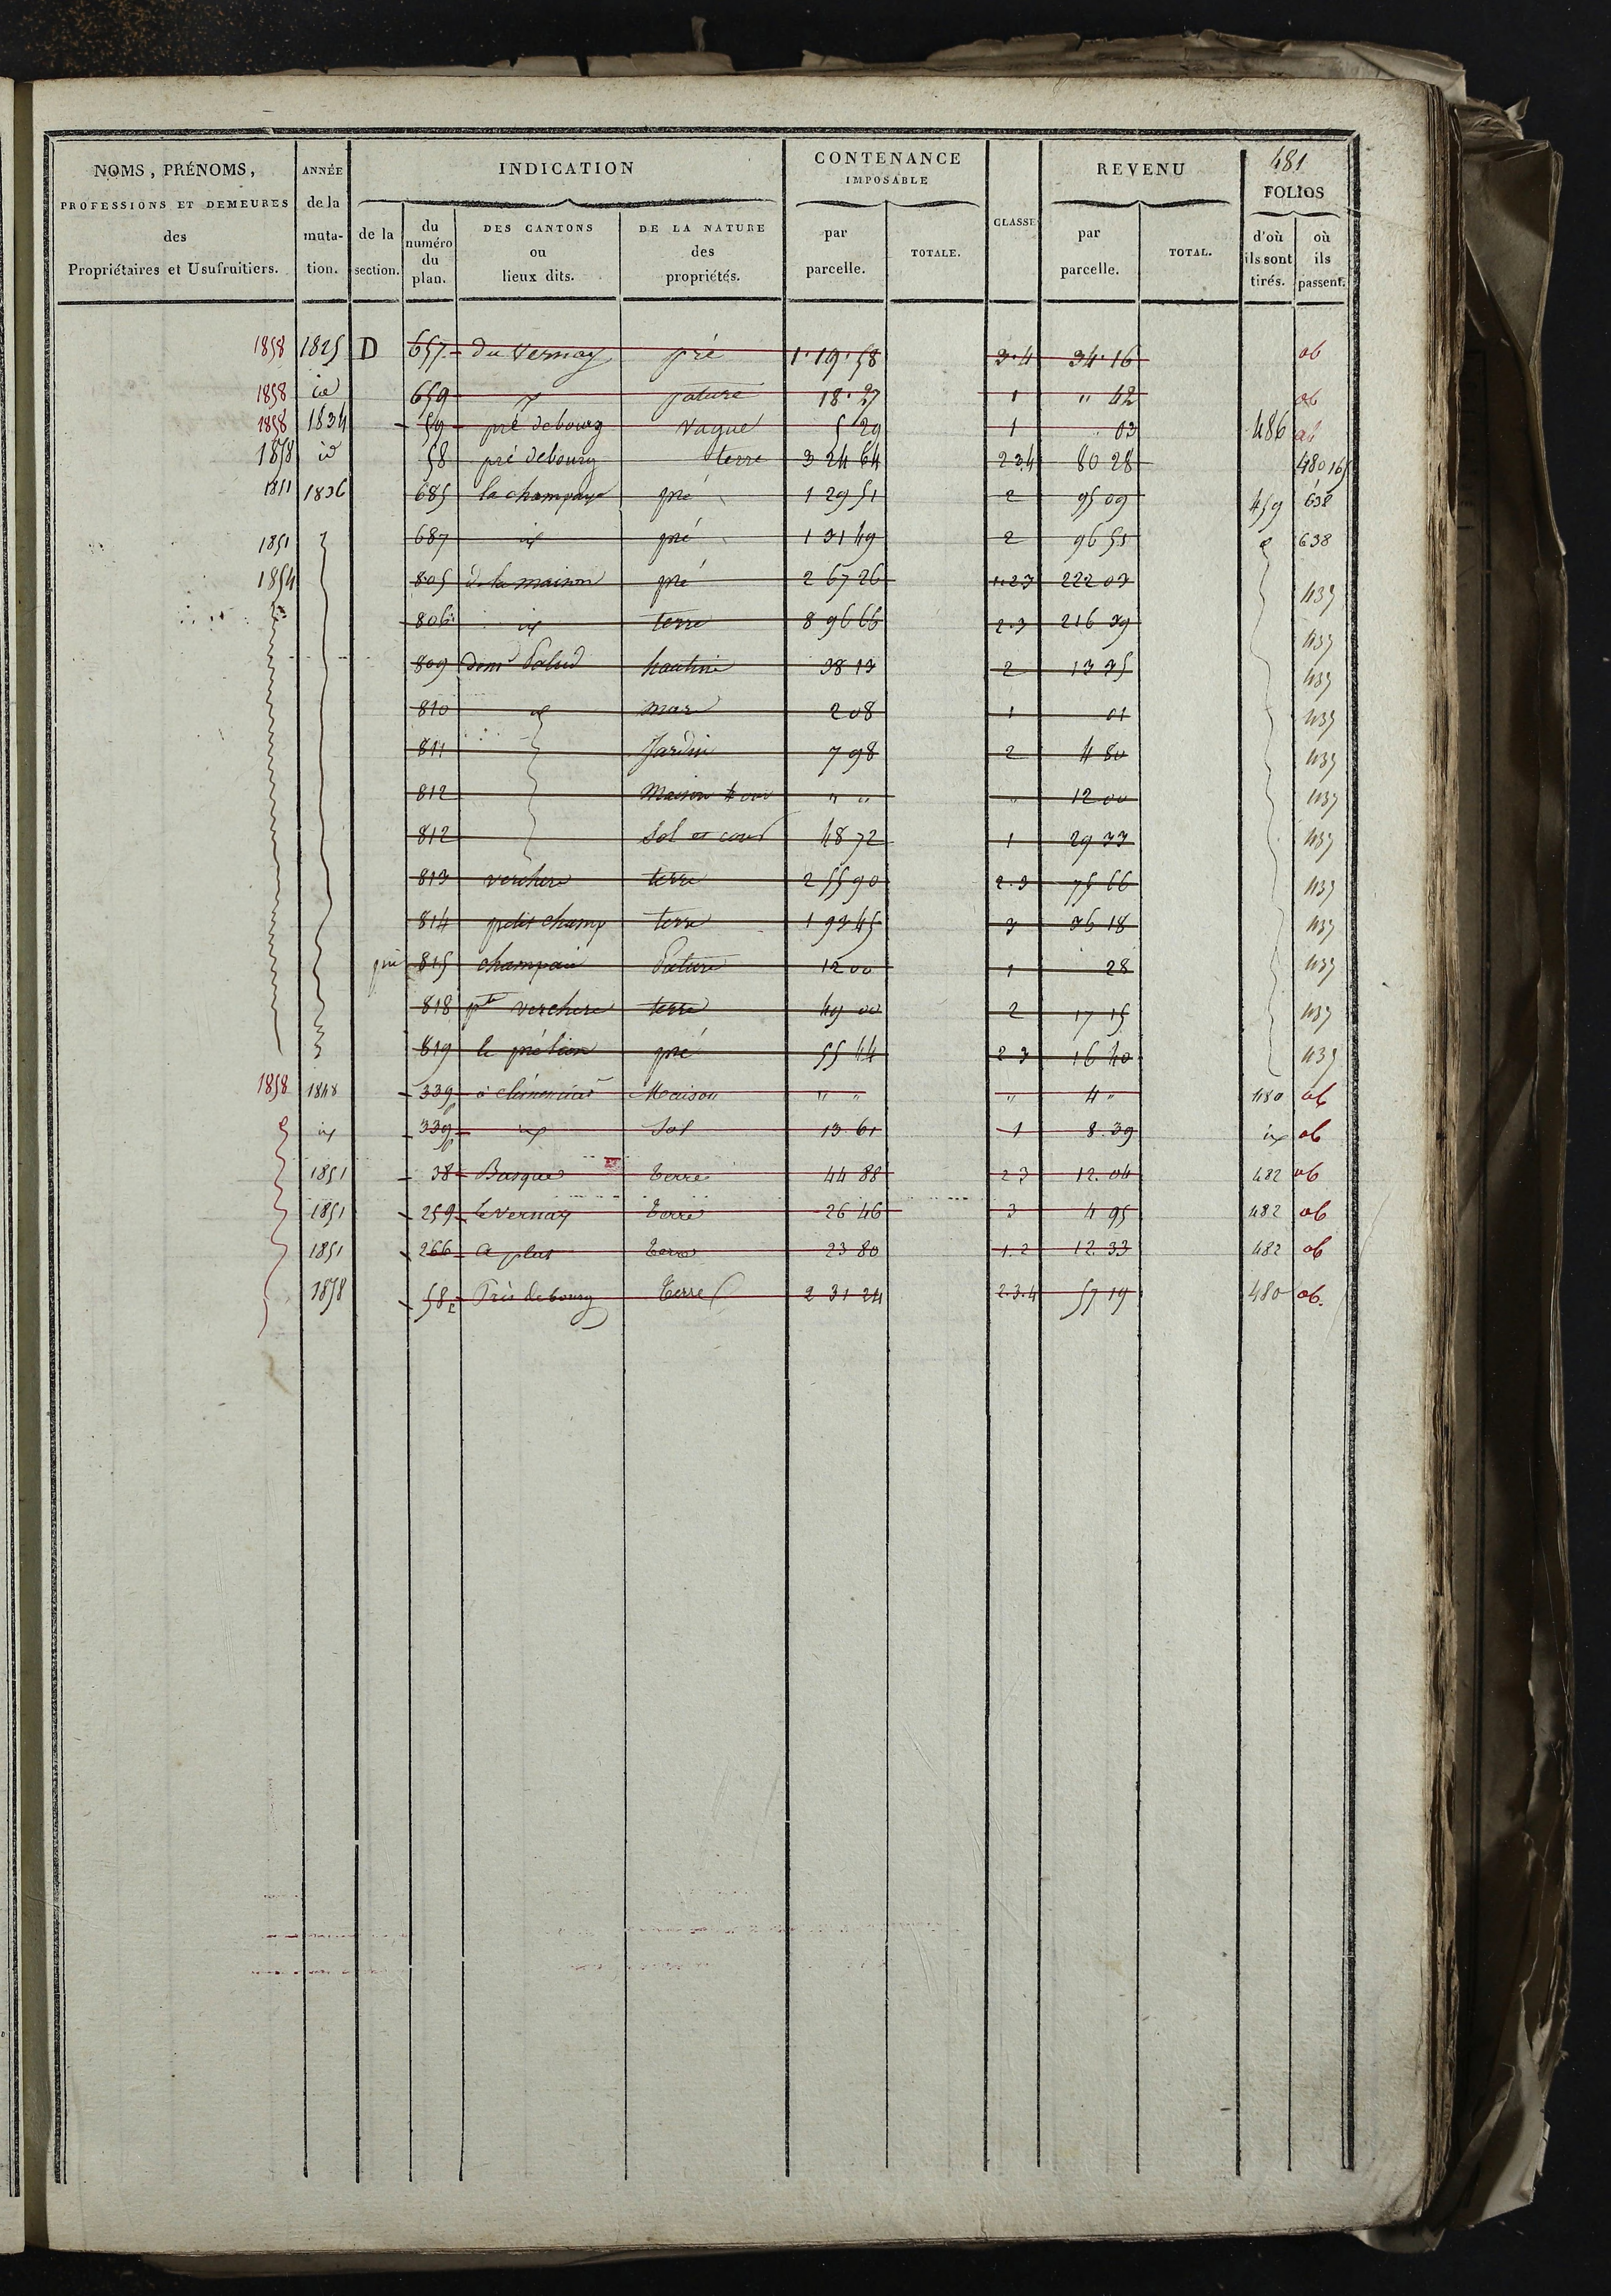 481
NOMS, PRÉNOMS, ANNÉE INDICATION CONTENANCE IMPOSABLE CLASSE REVENU FOLIOS
PROFESSIONS ET DEMEURES des Propriétaires et Usufruitiers. de la mutation. de la section. du numéro du plan. DES CANTONS ou lieux dits. DE LA NATURE des propriétés. par parcelle. TOTALE. par parcelle. TOTAL. d'où ils sont tirés. où ils passent.
1858 1825 D 657 du Vernay pré 1.19.58 3.4 34.16 ab
1858 id 659 pature 18.27 1 " 42 ab
1858 1834 59 pré debourg Vague 5 29 1 03 486 ab
1858 id 58 pré debourg terre 3 24 64 2 3 4 80 28 480
1851 1836 685 la champagne pré 1 29 51 2 95 09 459 638
1851 687 id pré 1 31 49 2 96 55 638
1854 805 de la maison pré 2 67 26 1.2.3 222 03 437
806 id terre 8 96 66 2.3 216 39 437
809 hautin 38 13 2 13 35 437
810 id mare 2 08 1 01 437
811 Jardin 7 98 2 4 80 437
812 Maison " " " 12 00 437
812 Sol et cour 48 72 1 29 33 437
813 verchere terre 2 55 90 2.3 75 66 437
814 petit champ terre 1 93 45 3 36 18 437
815 Pature 12 00 1 28 437
818 pte verchere terre 49 00 2 17 15 437
819 le pré pré 55 44 2 3 16 40 437
1858 1848 339 Maison " " " 4 " 480 ab
id 339 id Sol 13.61 1 8.39 id ab
1851 38 Basque terre 44 88 2 3 12.04 482 ab
1851 259 Le Vernay terre 26 46 3 4 95 482 ab
1851 266 terre 23 80 1.2 12 33 482 ab
1858 58 Près de bourg terre 2 31 24 2.3.4 57 19 480 ab.